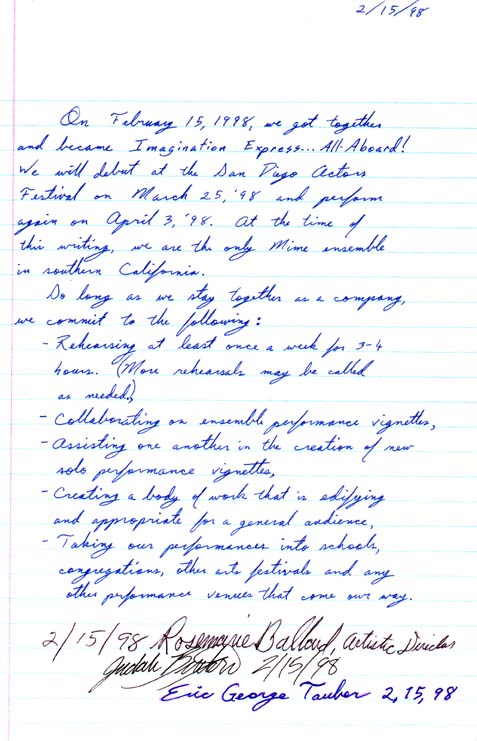 2/15/98
On February 15, 1998, we got together
and became Imagination Express... All-Aboard!
We will debut at the San Diego Actors
Festival on March 25, '98 and perform
again on April 3, '98. At the time of
this writing, we are the only Mime ensemble
in southern California.
So long as we stay together as a company,
we commit to the following:
- Rehearsing at least once a week for 3-4
hours. (More rehearsals may be called
as needed,)
- Collaborating on ensemble performance vignettes,
- Assisting one another in the creation of new
solo performance vignettes,
- Creating a body of work that is edifying
and appropriate for a general audience,
- Taking our performances into schools,
congregations, other arts festivals and any
other performance venues that come our way.
2/15/98 Rosemarie Ballard, Artistic Director
2/15/98
Eric George Tauber 2,15,98